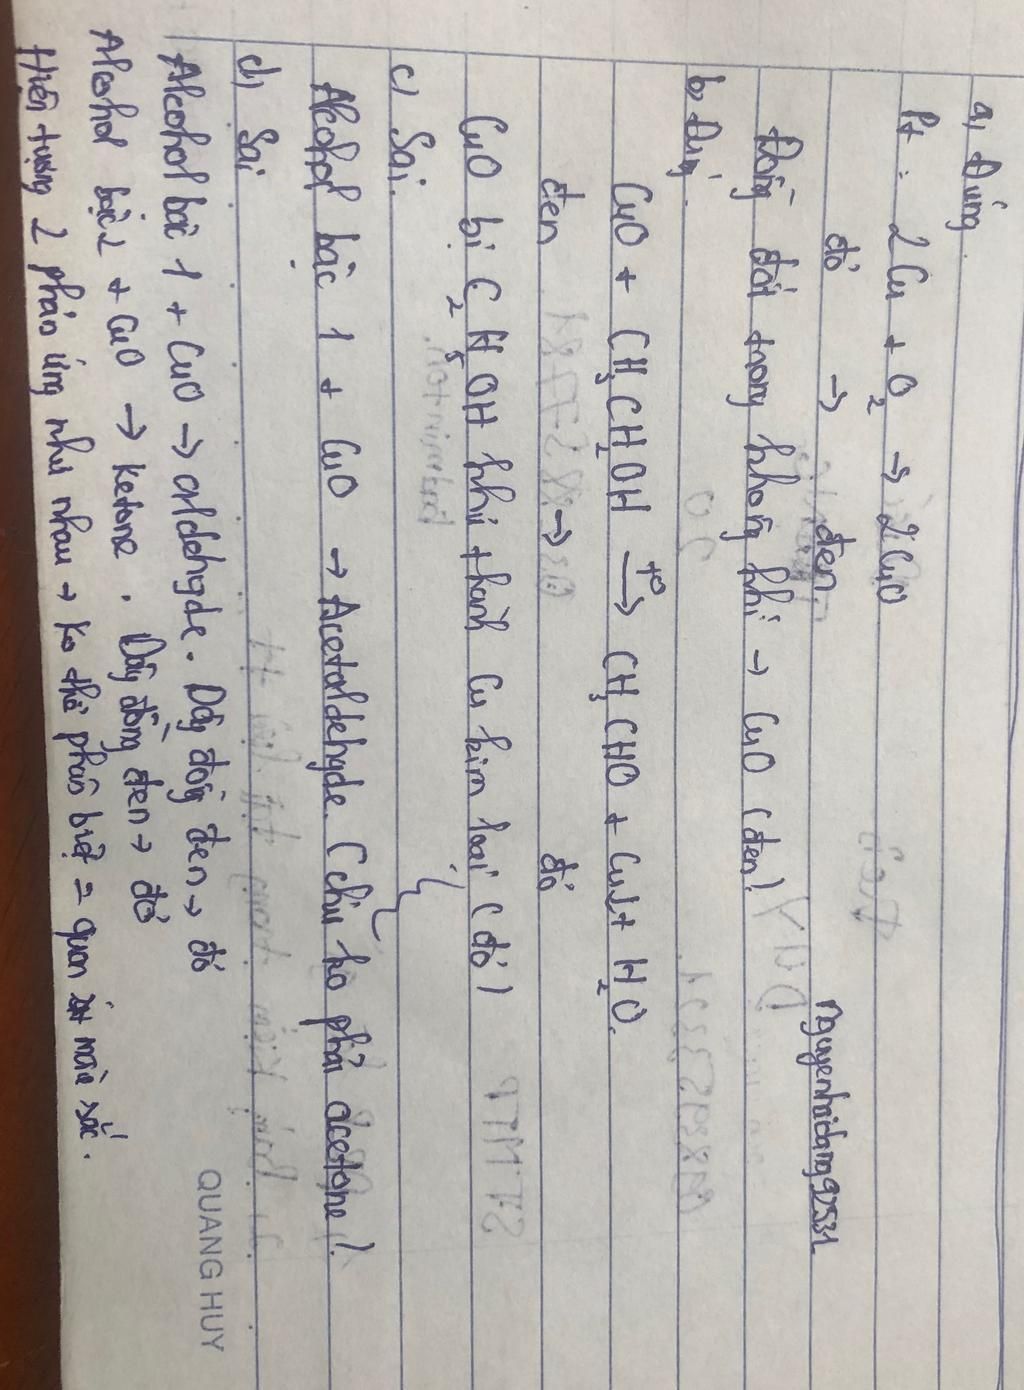 a, Đúng
Pt : 2Cu + O2 → 2CuO
đỏ → đen.
nguyenhaidang97531
Đồng đốt trong không khí → CuO (đen)
b, Đúng.
CuO + CH3CH2OH t° → CH3CHO + Cu↓ + H2O.
đen → đỏ
CuO bị C2H5OH khử thành Cu kim loại (đỏ)
c, Sai.
Alcohol bậc 1 + CuO → Acetaldehyde. (chứ ko phải acetone)
d, Sai
Alcohol bậc 1 + CuO → aldehyde. Dây đồng đen → đỏ
Alcohol bậc 2 + CuO → ketone. Dây đồng đen → đỏ
Hiện tượng 2 phản ứng như nhau → ko thể phân biệt = quan sát màu sắc.
QUANG HUY